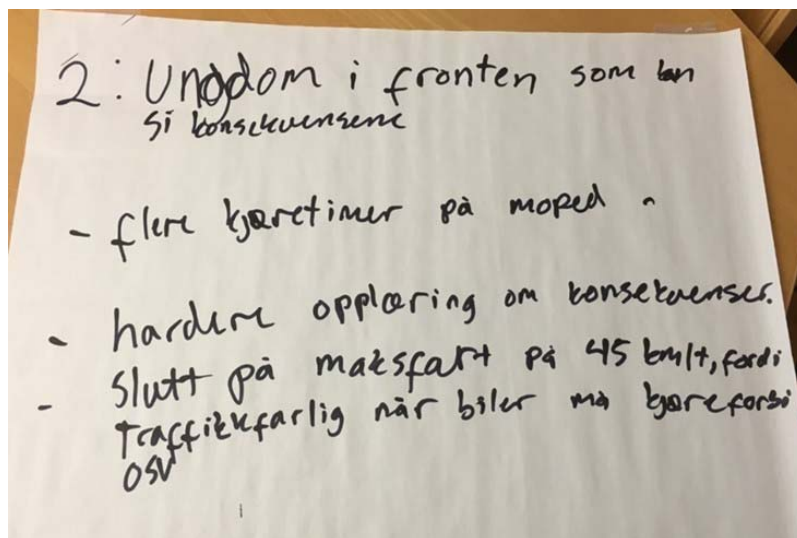 2: Ungdom i fronten som kan
si konsekvensene
- flere kjøretimer på moped
- hardere opplæring om konsekvenser.
- Slutt på maksfart på 45 km/t, fordi
Traffikkfarlig når biler må kjøre forbi
OSV